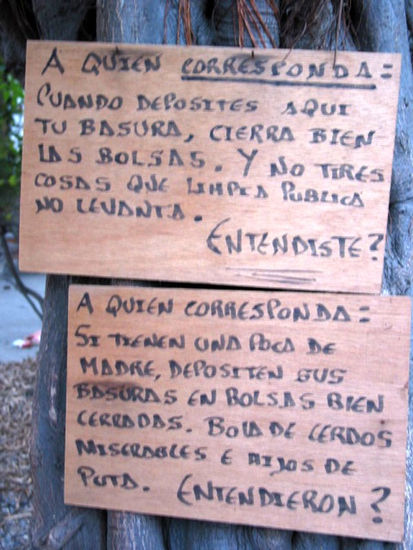 A QUIEN CORRESPONDA =
CUANDO DEPOSITES AQUI
TU BASURA, CIERRA BIEN
LAS BOLSAS. Y NO TIRES
COSAS QUE LIMPIA PUBLICA
NO LEVANTA.
ENTENDISTE?
A QUIEN CORRESPONDA =
SI TIENEN UNA POCA DE
MADRE, DEPOSITEN SUS
BASURAS EN BOLSAS BIEN
CERRADAS. BOLA DE CERDOS
MISERABLES E HIJOS DE
PUTA. ENTENDIERON?